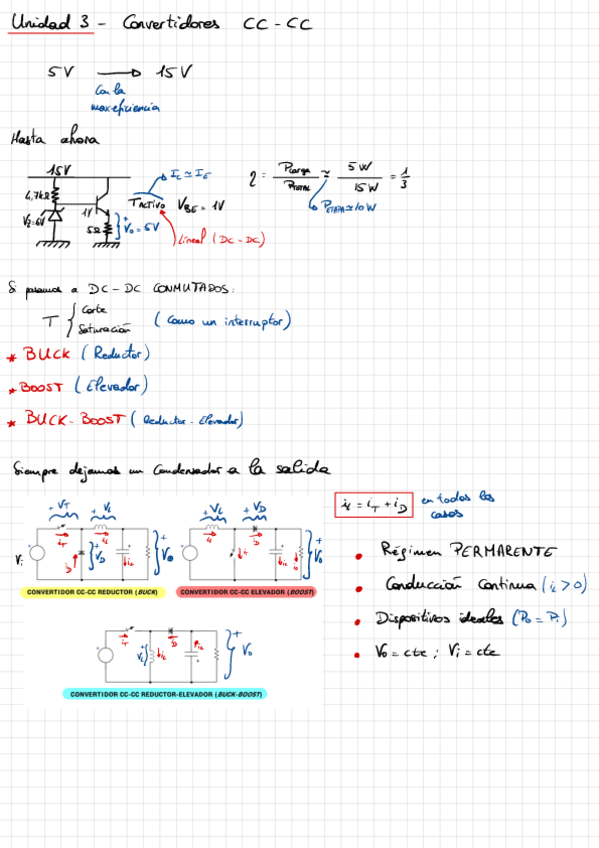 Unidad 3 - Convertidores CC-CC
5V → 15V
Con la
max eficiencia
Hasta ahora
15V
4,7kΩ
1V
Vz=6V
5Ω
Vo = 5V
TACTIVO
IC ≃ IE
VBE = 1V
Lineal (DC-DC)
η = Pcarga / PTOTAL ≃ 5W / 15W = 1/3
PETAPA ≃ 10W
Si pasamos a DC-DC CONMUTADOS:
T { Corte
Saturación
(Como un interruptor)
* BUCK (Reductor)
* BOOST (Elevador)
* BUCK-BOOST (Reductor-Elevador)
Siempre dejamos un Condensador a la salida
+ VT - + VL -
iT iL
Vi
iD VD ic Vo
CONVERTIDOR CC-CC REDUCTOR (BUCK)
+ VL - + VD -
iL iD
iT ic io Vo
CONVERTIDOR CC-CC ELEVADOR (BOOST)
iT iD
VL iL ic Vo
CONVERTIDOR CC-CC REDUCTOR-ELEVADOR (BUCK-BOOST)
iL = iT + iD en todos los
casos
• Régimen PERMARENTE
• Conducción Continua (iL > 0)
• Dispositivos ideales (Po = Pi)
• Vo = cte ; Vi = cte